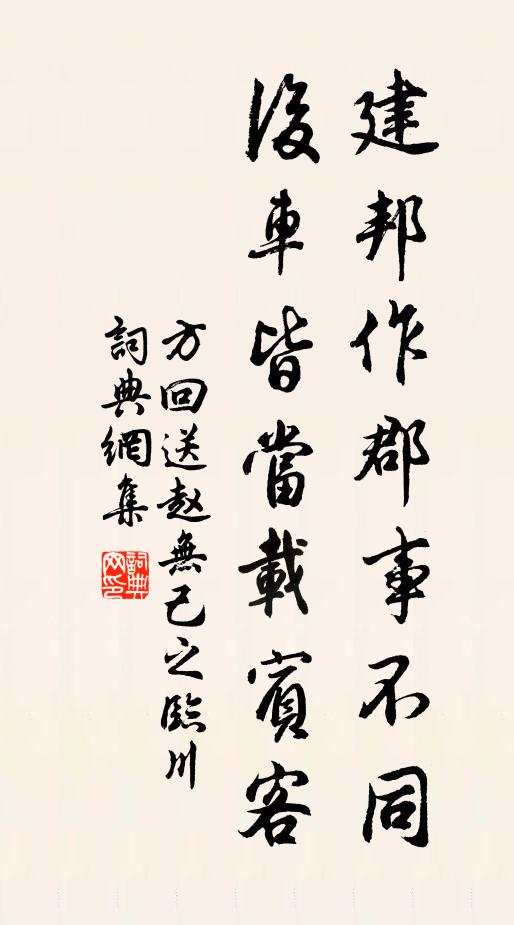 建邦作郡事不同
後車皆當載賓客
方回送赵無己之臨川
詞典網集
詞典網印